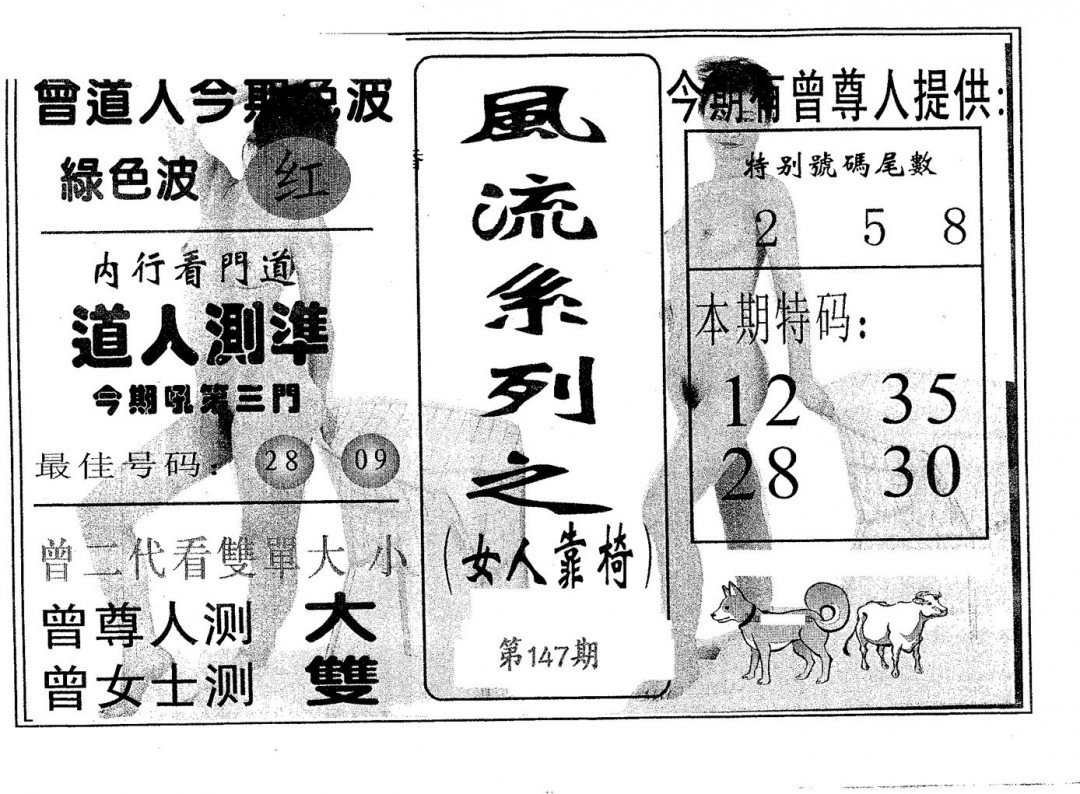 曾道人今期色波
綠色波 红
内行看門道
道人测準
今期吼第三門
最佳号码: 28 09
曾二代看雙單大小
曾尊人测 大
曾女士测 雙
風流系列之
(女人靠椅)
第147期
今期有曾尊人提供:
特别號碼尾數
2 5 8
本期特码:
12 35
28 30